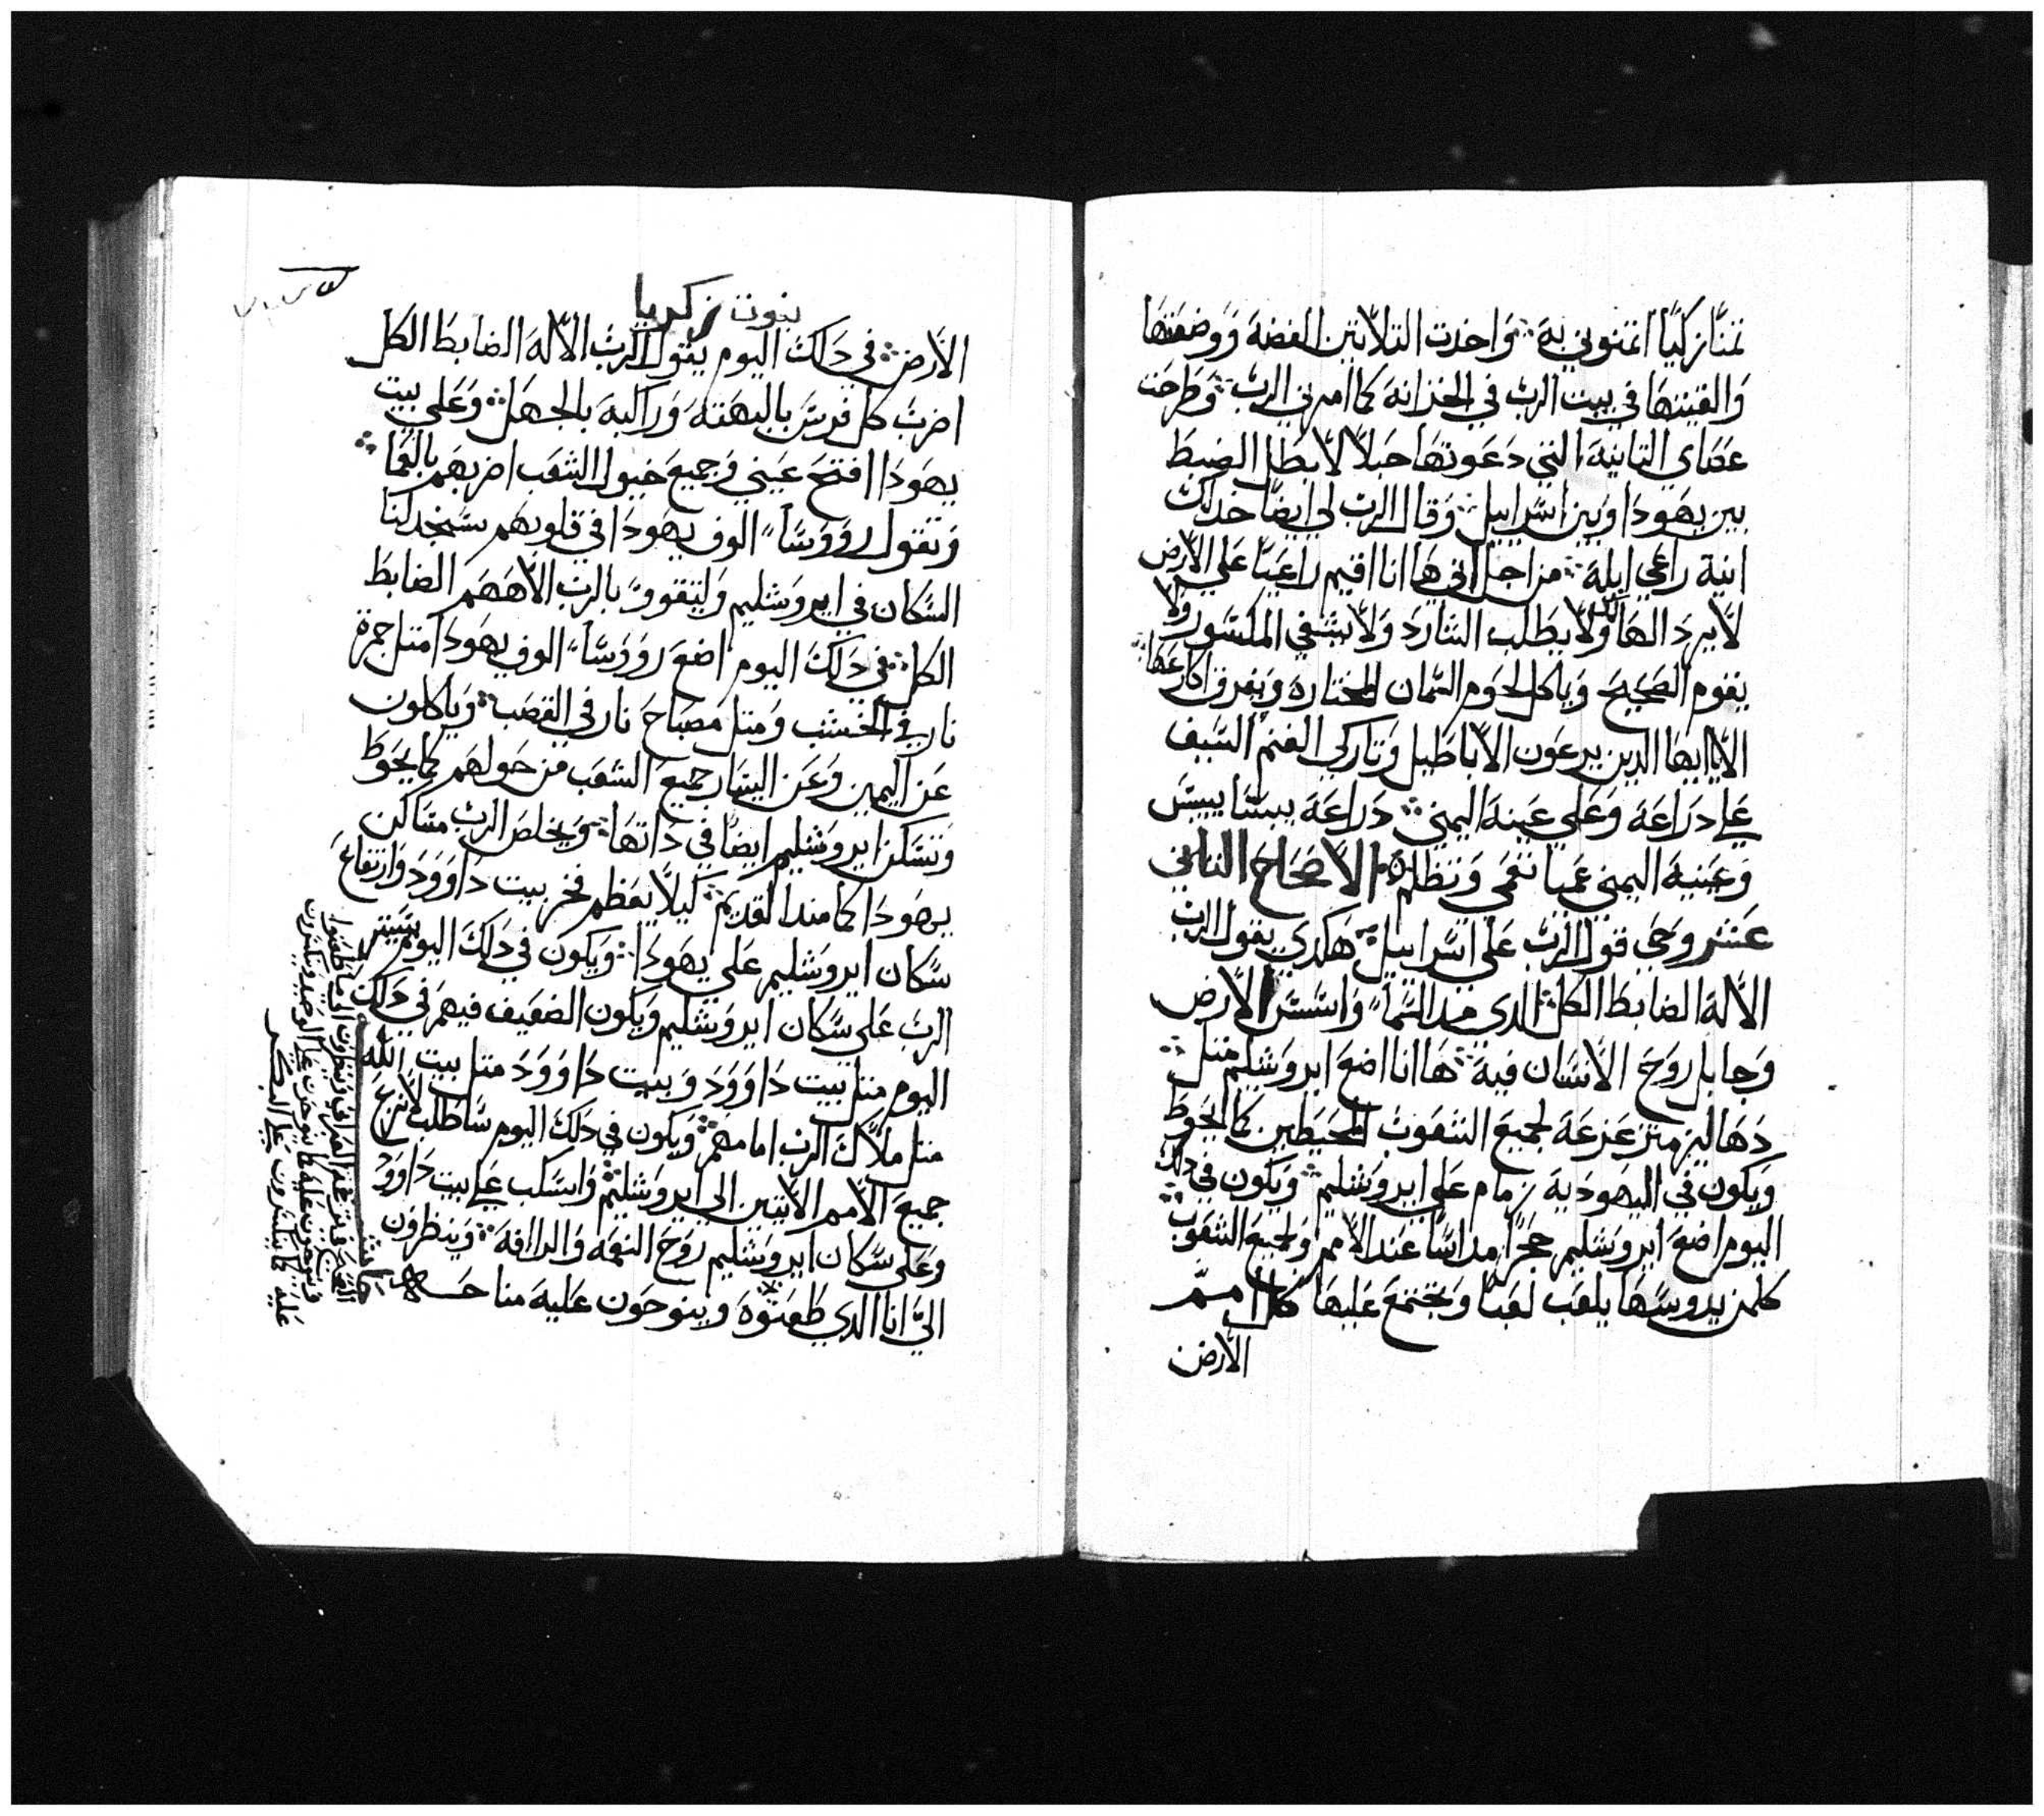 تمنًا زكيًا اتمنوني به ۞ واخدت التلاتين الفضة ووضعتها
والقيتها في بيت الرب في الخزانة كما امرني الرب ۞ وطرحت
عصاي التانيه التي دعوتها حبلًا لابطل الضبط
بين يهودا وبين اسراييل ۞ وقال الرب لي ايضًا خد لك
انية راعي ابله ۞ من اجل اني ها انا اقيم راعيًا علي الارض
لا يرد الهالك ولا يطلب الشارد ولا يشفي المكسور ولا
يقوم الصحيح وياكل لحوم السمان المختاره ويفرق اكارعها ۞
الا يا ايها الدين يرعون الاباطيل وتاركي الغنم السيف
علي دراعه وعلي عينه اليمني ۞ دراعه يبسًا ييبس
وعينيه اليمني عميا تعمي وتظلم ۞ الاصحاح التاني
عشر وحي قول الرب علي اسراييل ۞ هكدي يقول الرب
الاله الضابط الكل الدي مد السما واسس الارض
وجابل روح الانسان فيه ۞ ها انا اضع ايروشليم متل ۞
دهاليز متزعزعه لجميع الشعوب المحيطين كما يحوط
ويكون في اليهودية زمام علي ايروشليم ۞ ويكون في دلك
اليوم اضع ايروشليم حجرًا مداسًا عند الامم ولجميع الشعوب ۞
كلمن يدوسها يلعب لعبًا وتجتمع عليها كل امم
الارض
نبوت زكريا
الارض ۞ في دلك اليوم يقول الرب الاله الضابط الكل
اضرب كل فرس بالبهته وراكبه بالجهل ۞ وعلي بيت
يهودا افتح عيني وجميع خيول الشعب اضربهم بالعما ۞
وتقول رووسا الوف يهودا في قلوبهم سنجد لنا
السكان في ايروشليم وليتقوو بالرب الاههم الضابط
الكل ۞ في دلك اليوم اضع رووسا الوف يهودا متل جمرة
نار في الخشب ومتل مصباح نار في القصب ۞ وياكلون
عن اليمين وعن اليسار جميع الشعب من حولهم كما يحوط
وتسكن ايروشليم ايضًا في داتها ۞ ويخلص الرب مساكن
يهودا كما مند القديم ۞ كيلا يعظم فخر بيت داوود وارتفاع
سكان ايروشليم علي يهودا ۞ ويكون في دلك اليوم يستر
الرب علي سكان ايروشليم ويكون الضعيف فيهم في دلك
اليوم متل بيت داوود وبيت داوود متل بيت الله
متل ملاك الرب امامهم ۞ ويكون في دلك اليوم ساطلب لانزع
جميع الامم الاتيين الي ايروشليم ۞ واسكب علي بيت داوود
وعلي سكان ايروشليم روح النعمه والرافه ۞ وينظرون
اليّ انا الدي طعنوه وينوحون عليه مناحـــه